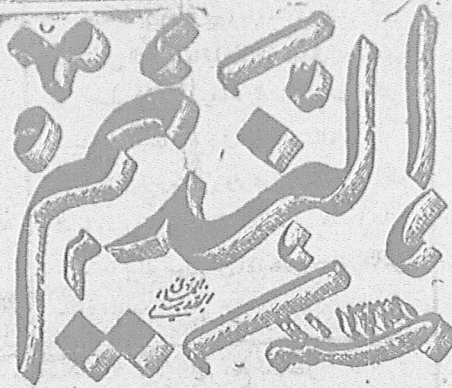 النديم